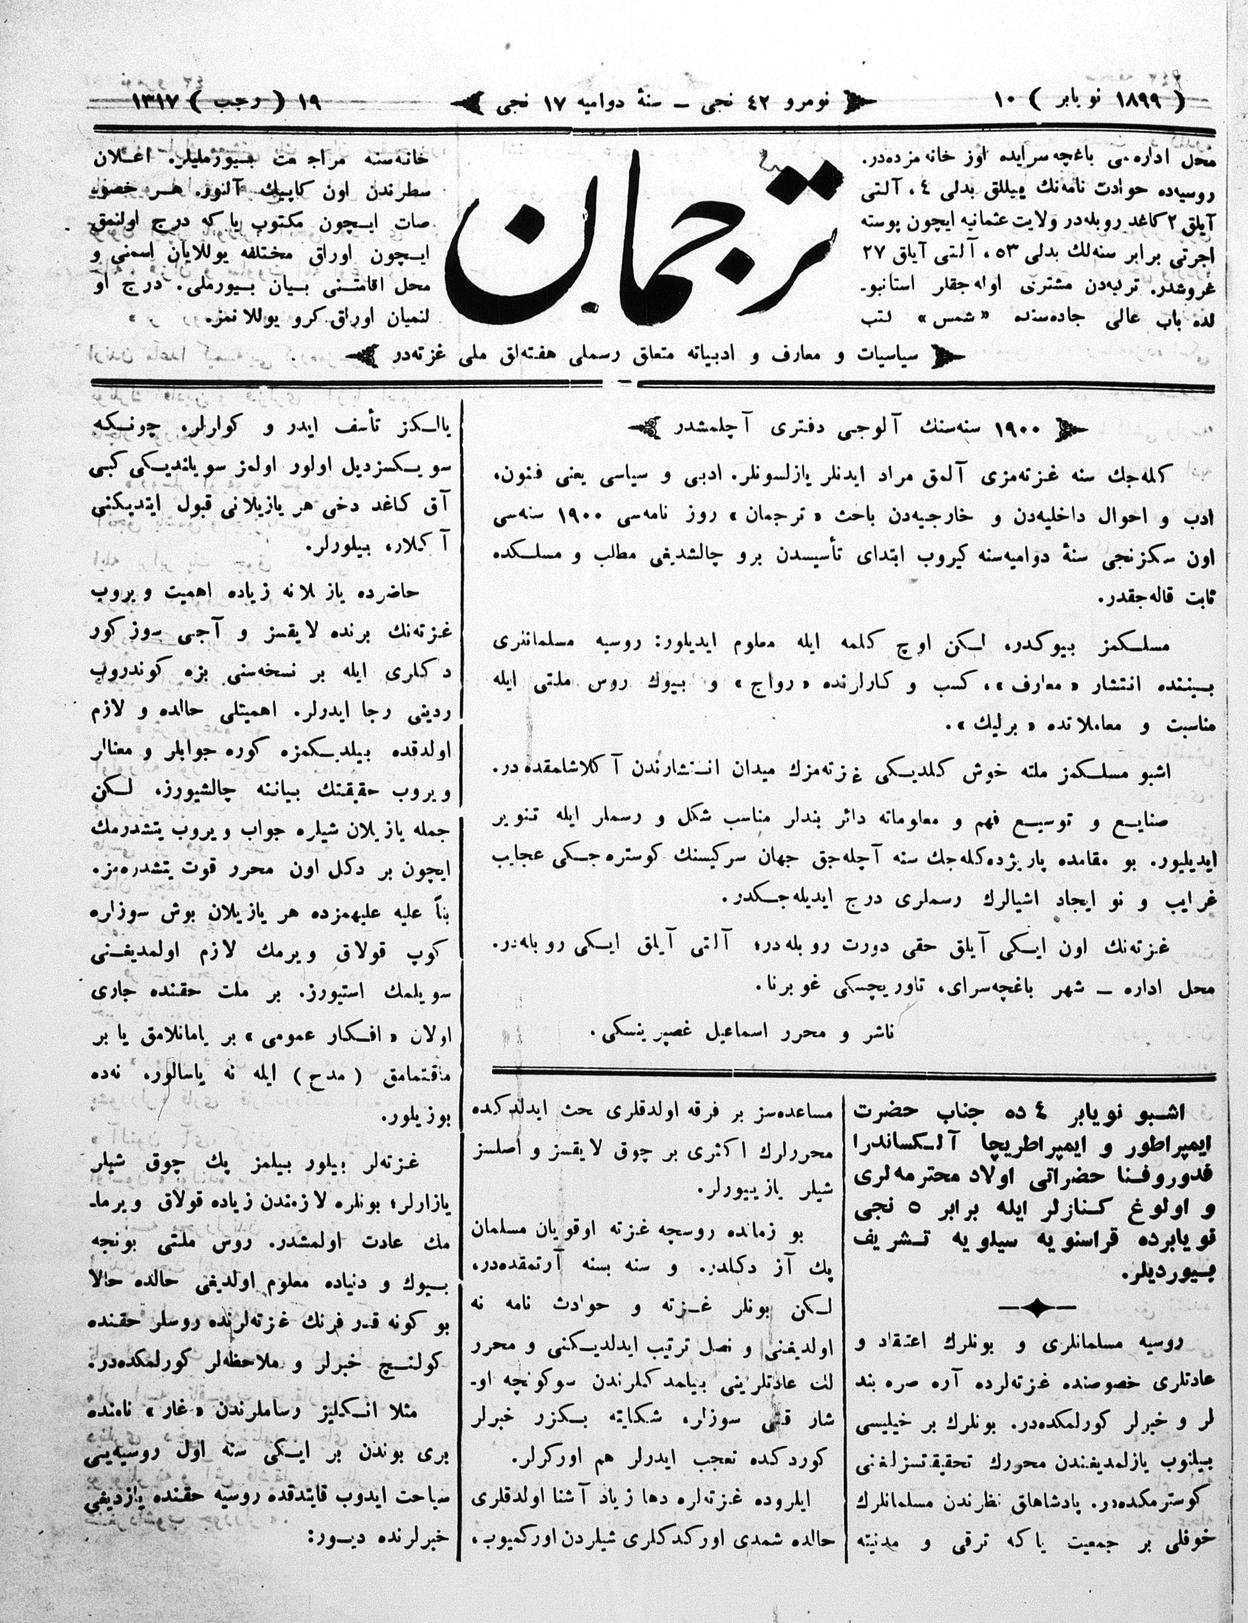 ( ١٨٩٩ نویابر ) ١٠
نومرو ٤٢ نجی ــ سنهٔ دوامیه ١٧ نجی
١٩ ( رجب ) ١٣١٧
محل اداره‌سی باغچه‌سرایده اوز خانه مزده‌در.
روسیه‌ده حوادث نامه‌نك ییللق بدلی ٤، آلتی
آیلق ٢ كاغد روبله‌در ولایت عثمانیه ایچون پوسته
اجرتی برابر سنه‌لك بدلی ٥٣، آلتی آیلق ٢٧
غروشدر. تركیه‌دن مشتری اوله‌جقلر استانبو-
لده باب عالی جاده‌سنده «شمس» كتب
ترجمان
خانه‌سنه مراجعت بیورملیلر. اعلان
سطرندن اون كاپیك آلنور. هر خصو-
صات ایچون مكتوب یا كه درج اولنمق
ایچون اوراق مختلفه یوللایان اسمنی و
محل اقامتنی بیان بیورملی. درج او
لنمیان اوراق كرو یوللانمز.
سیاسیات و معارف و ادبیاته متعلق رسملی هفته‌لق ملی غزته‌در
١٩٠٠ سنه‌سنك آلوجی دفتری آچلمشدر
كله‌جك سنه غزته‌مزی آلمق مراد ایدنلر یازلسونلر. ادبی و سیاسی یعنی فنون،
ادب و احوال داخلیه‌دن و خارجیه‌دن باحث «ترجمان» روز نامه‌سی ١٩٠٠ سنه‌سی
اون سكزنجی سنهٔ دوامیه‌سنه كیروب ابتدای تأسیسدن برو چالشدیغی مطالب و مسلكده
ثابت قاله‌جقدر.
مسلكمز بیوكدر، لكن اوچ كلمه ایله معلوم ایدیلور: روسیه مسلمانلری
بیننده انتشار «معارف»، كسب و كارلرنده «رواج» و بیوك روس ملتی ایله
مناسبت و معاملاتده «برلیك».
اشبو مسلكمز ملته خوش كلدیكی غزته‌مزك میدان انتشارندن آكلاشلمقده‌در.
صنایع و توسیع فهم و معلوماته دائر بندلر مناسب شكل و رسملر ایله تنویر
ایدیلیور. بو مقامده پاریژده كله‌جك سنه آچله‌جق جهان سركیسنك كوستره‌جكی عجایب
غرایب و نو ایجاد اشیالرك رسملری درج ایدیله‌جكدر.
غزته‌نك اون ایكی آیلق حقی دورت روبله‌در؛ آلتی آیلق ایكی روبله‌در.
محل اداره ــ شهر باغچه‌سرای، تاوریچسكی غوبرنا.
ناشر و محرر اسماعیل غصپرینسكی.
اشبو نویابر ٤ ده جناب حضرت
ایمپراطور و ایمپراطریچا آلكساندرا
فدوروفنا حضراتی اولاد محترمه‌لری
و اولوغ كنازلر ایله برابر ٥ نجی
نویابرده قراسنویه سیلویه تشریف
بیوردیلر.
روسیه مسلمانلری و بونلرك اعتقاد و
عادتلری خصوصنده غزته‌لرده آره صره بند
لر و خبرلر كورلمكده‌در. بونلرك بر خیلیسی
بیلنوب یازلمدیغندن محررك تحقیقتسزلغنی
كوسترمكده‌در. پادشاهلق نظرندن مسلمانلرك
خوفلی بر جمعیت یا كه ترقی و مدنیته
مساعده‌سز بر فرقه اولدقلری بحث ایدلدكده
محررلرك اكثری بر چوق لایقسز و اصلسز
شیلر یازییورلر.
بو زمانده روسچه غزته اوقویان مسلمان
پك آز دكلدر. و سنه بسنه آرتمقده‌در،
لكن بونلر غزته و حوادث نامه نه
اولدیغنی و نصل ترتیب ایدلدیكنی و محرر
لك عادتلرینی بیلمدكلرندن سوكونچه او-
شار قتی سوزلر، شكایته بكزر خبرلر
كوردكده تعجب ایدرلر هم اوركرلر.
ایلروده غزته‌لره دها زیاد آشنا اولدقلری
حالده شمدی اوركدكلری شیلردن اوركمیوب،
یالكز تأسف ایدر و كوارلر، چونكه
سویكسزدیل اولور اولمز سویلندیكی كبی
آق كاغد دخی هر یازیلانی قبول ایتدیكنی
آكلار، بیلورلر.
حاضرده یازیلانه زیاده اهمیت ویروب
غزته‌نك برنده لایقسز و آجی سوز كور
دكلری ایله بر نسخه‌سنی بزه كوندروب
ردینی رجا ایدرلر. اهمیتلی حالده و لازم
اولدقده بیلدیكمزه كوره جوابلر و معنالر
ویروب حقیقتك بیاننه چالشیورز، لكن
جمله یازیلان شیلره جواب ویروب یتشدرمك
ایچون بر دكل اون محرر قوت یتشدره‌مز.
بنأ علیه علیهمزده هر یازیلان بوش سوزلره
كوب قولاق ویرمك لازم اولمدیغنی
سویلمك استیورز. بر ملت حقنده جاری
اولان «افكار عمومی» بر یامانلامق یا بر
ماقتمامق ( مدح ) ایله نه یاسالور، نه‌ده
بوزیلور.
غزته‌لر بیلور بیلمز پك چوق شیلر
یازارلر؛ بونلره لازمندن زیاده قولاق ویرما-
مك عادت اولمشدر. روس ملتی بونجه
بیوك و دنیاده معلوم اولدیغی حالده حالا
بو كونه قدر فرنك غزته‌لرنده روسلر حقنده
كولنچ خبرلر و ملاحظه‌لر كورلمكده‌در.
مثلا انكلیز رساملرندن «غار» نامنده
بری بوندن بر ایكی سنه اول روسیه‌یی
سیاحت ایدوب قایتدقده روسیه حقنده یازدیغی
خبرلرنده دیور: